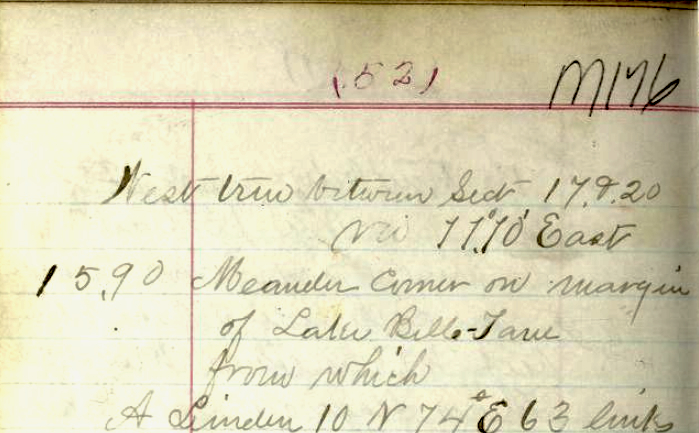 (52)
M176
West true between Sect 17.&.20
Va 11°,10' East
15,90 Meander Corner on margin
of Lake Belle-Taine
from which
A Linden 10 N 74° E 63 links